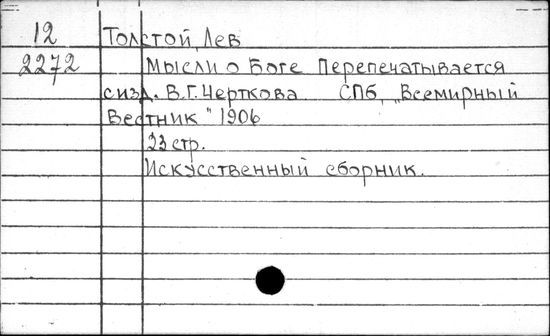 12 Толстой, Лев
2272 Мысли о Боге Перепечатывается
с изд. В.Г. Черткова СПб, „Всемирный
Вестник" 1906
23 стр.
Искусственный сборник.